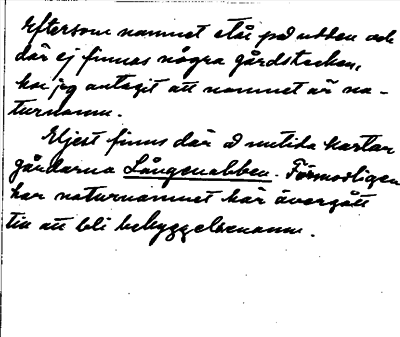 Eftersom namnet står på udden och
där ej finnas några gårdstecken,
har jag antagit att namnet är na-
turnamn.
Eljest finns där å nutida kartor
gårdarna Långsnabben. Förmodligen
har naturnamnet här övergått
till att bli bebyggelsenamn.